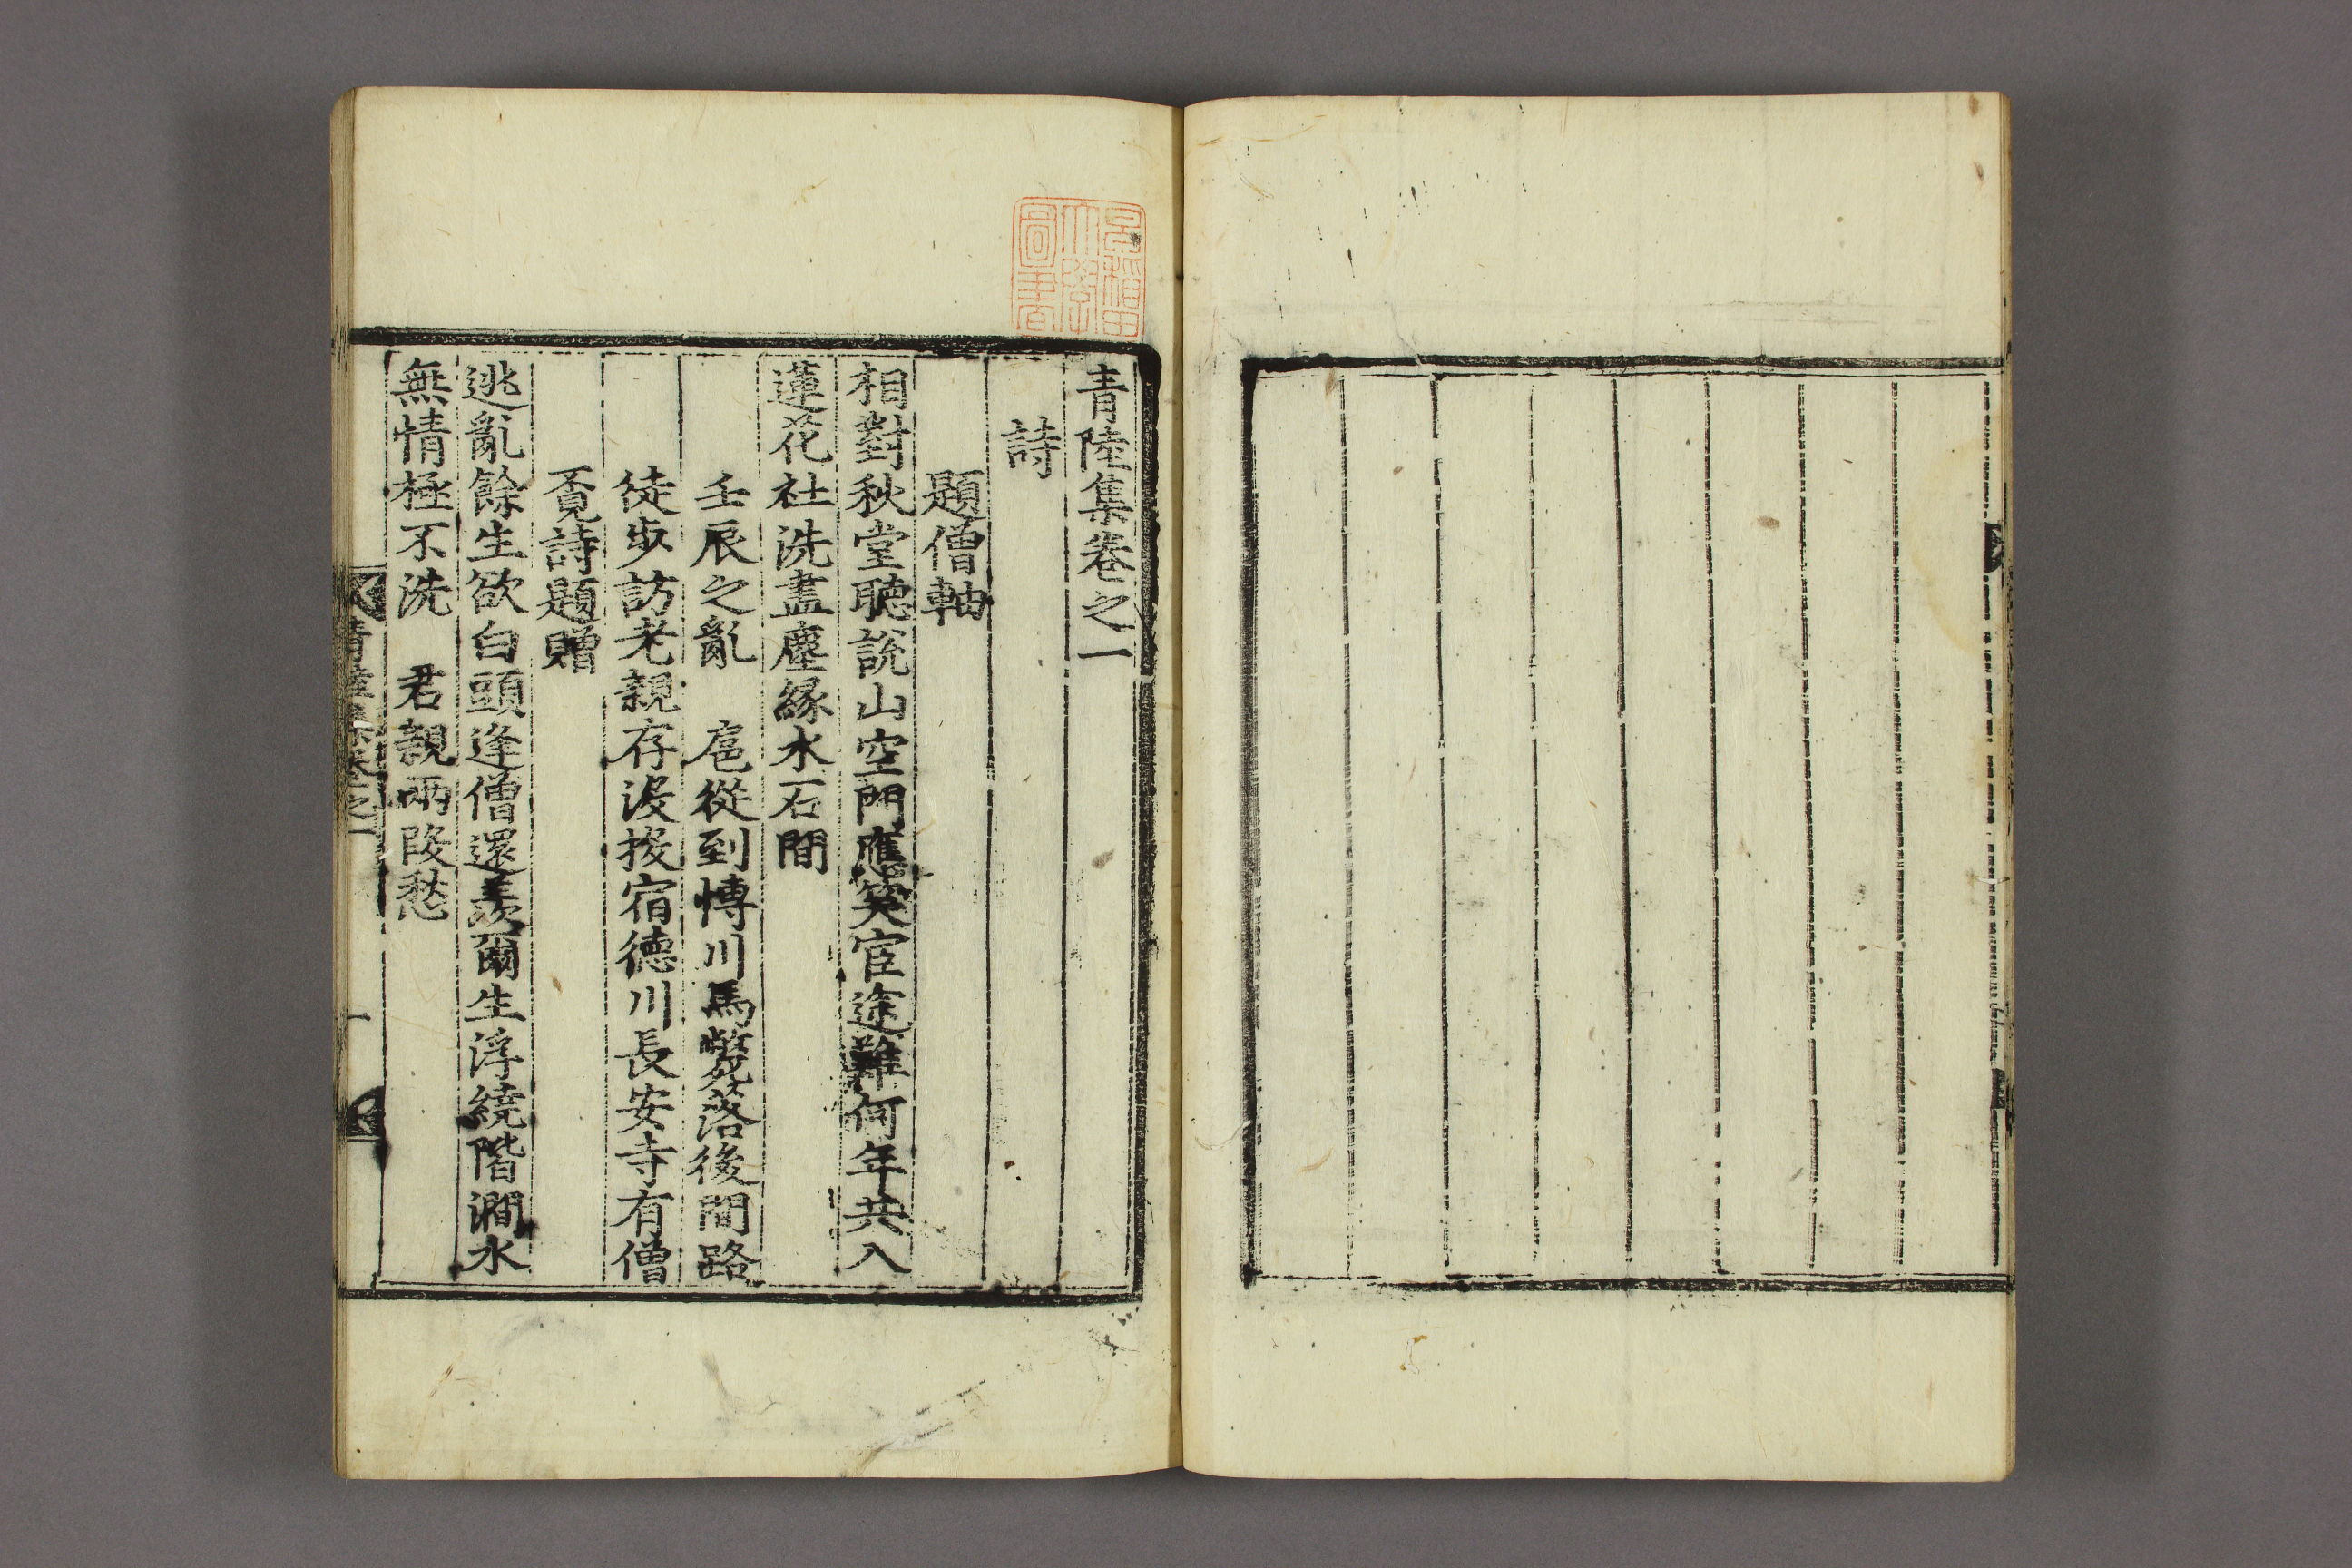 青陸集卷之一
詩
題僧軸
相對秋堂聽說山空門應笑宦途難何年共入
蓮花社洗盡塵緣水石間
壬辰之亂　扈從到博川馬斃落後間路
徒步訪老親存沒投宿德川長安寺有僧
覔詩題贈
逃亂餘生欲白頭逢僧還羨爾生浮繞階澗水
無情極不洗　君親兩段愁
青陸集卷之一
一
早稻田
大學
圖書